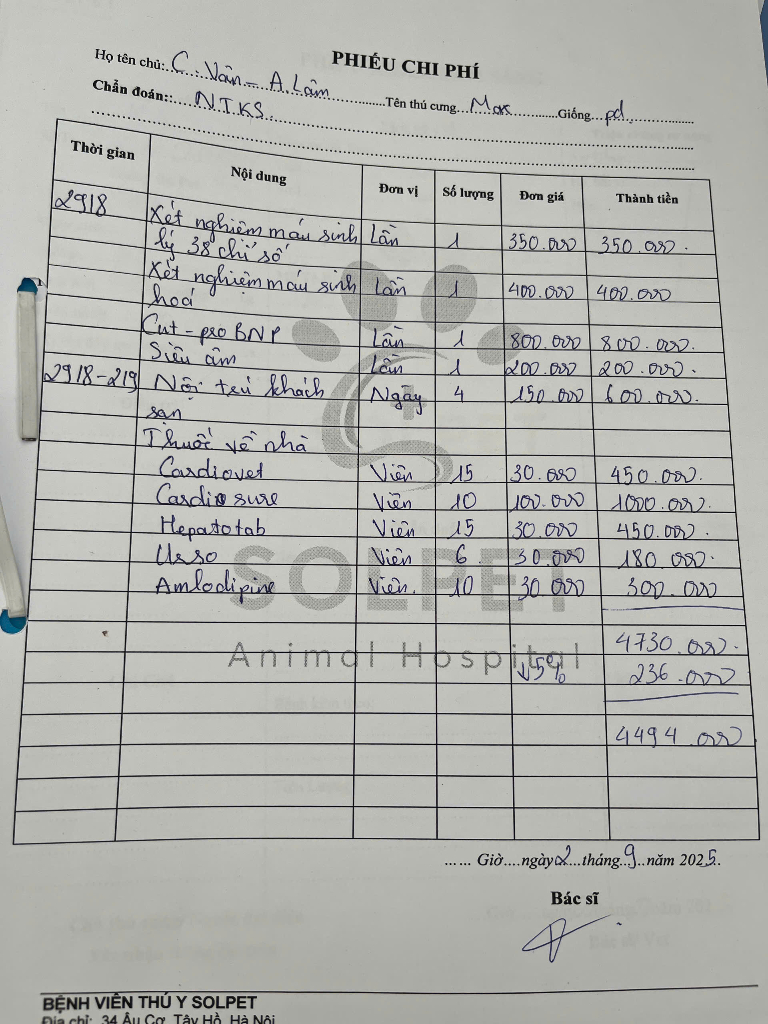 PHIẾU CHI PHÍ
Họ tên chủ: C. Vân - A. Lâm Tên thú cưng Max Giống pd
Chẩn đoán: N.T.K.S.
Thời gian Nội dung Đơn vị Số lượng Đơn giá Thành tiền
29/8 Xét nghiệm máu sinh Lần 1 350.000 350.000.
lý 38 chỉ số
Xét nghiệm máu sinh Lần 1 400.000 400.000
hoá
Cut-proBNP Lần 1 800.000 800.000.
Siêu âm Lần 1 200.000 200.000.
29/8-2/9 Nội trú khách Ngày 4 150.000 600.000.
sạn
Thuốc về nhà
Cardiovet Viên 15 30.000 450.000.
Cardiosure Viên 10 100.000 1000.000.
Hepatotab Viên 15 30.000 450.000
Usso Viên 6 30.000 180.000.
Amlodipine Viên. 10 30.000 300.000
SOLPET
Animal Hospital
4730.000.
↓5% 236.000
4494.000
...... Giờ....ngày 2...tháng..9..năm 2025.
Bác sĩ
BỆNH VIỆN THÚ Y SOLPET
Địa chỉ: 34 Âu Cơ, Tây Hồ, Hà Nội